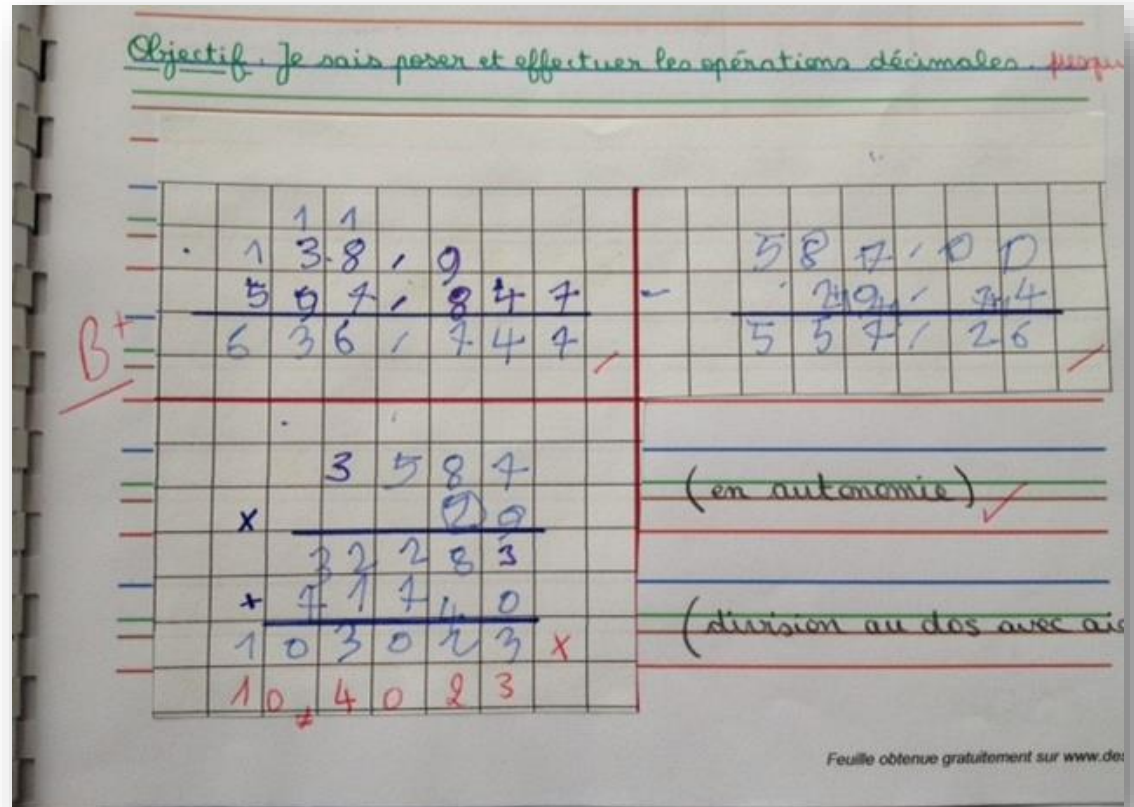 Objectif. Je sais poser et effectuer les opérations décimales.
1 1
138,9
597,847
636,747
B+
587,00
- 29,74
557,26
3587
x 29
32283
+ 71740
103023 x
104023
(en autonomie)
(division au dos avec
Feuille obtenue gratuitement sur www.de